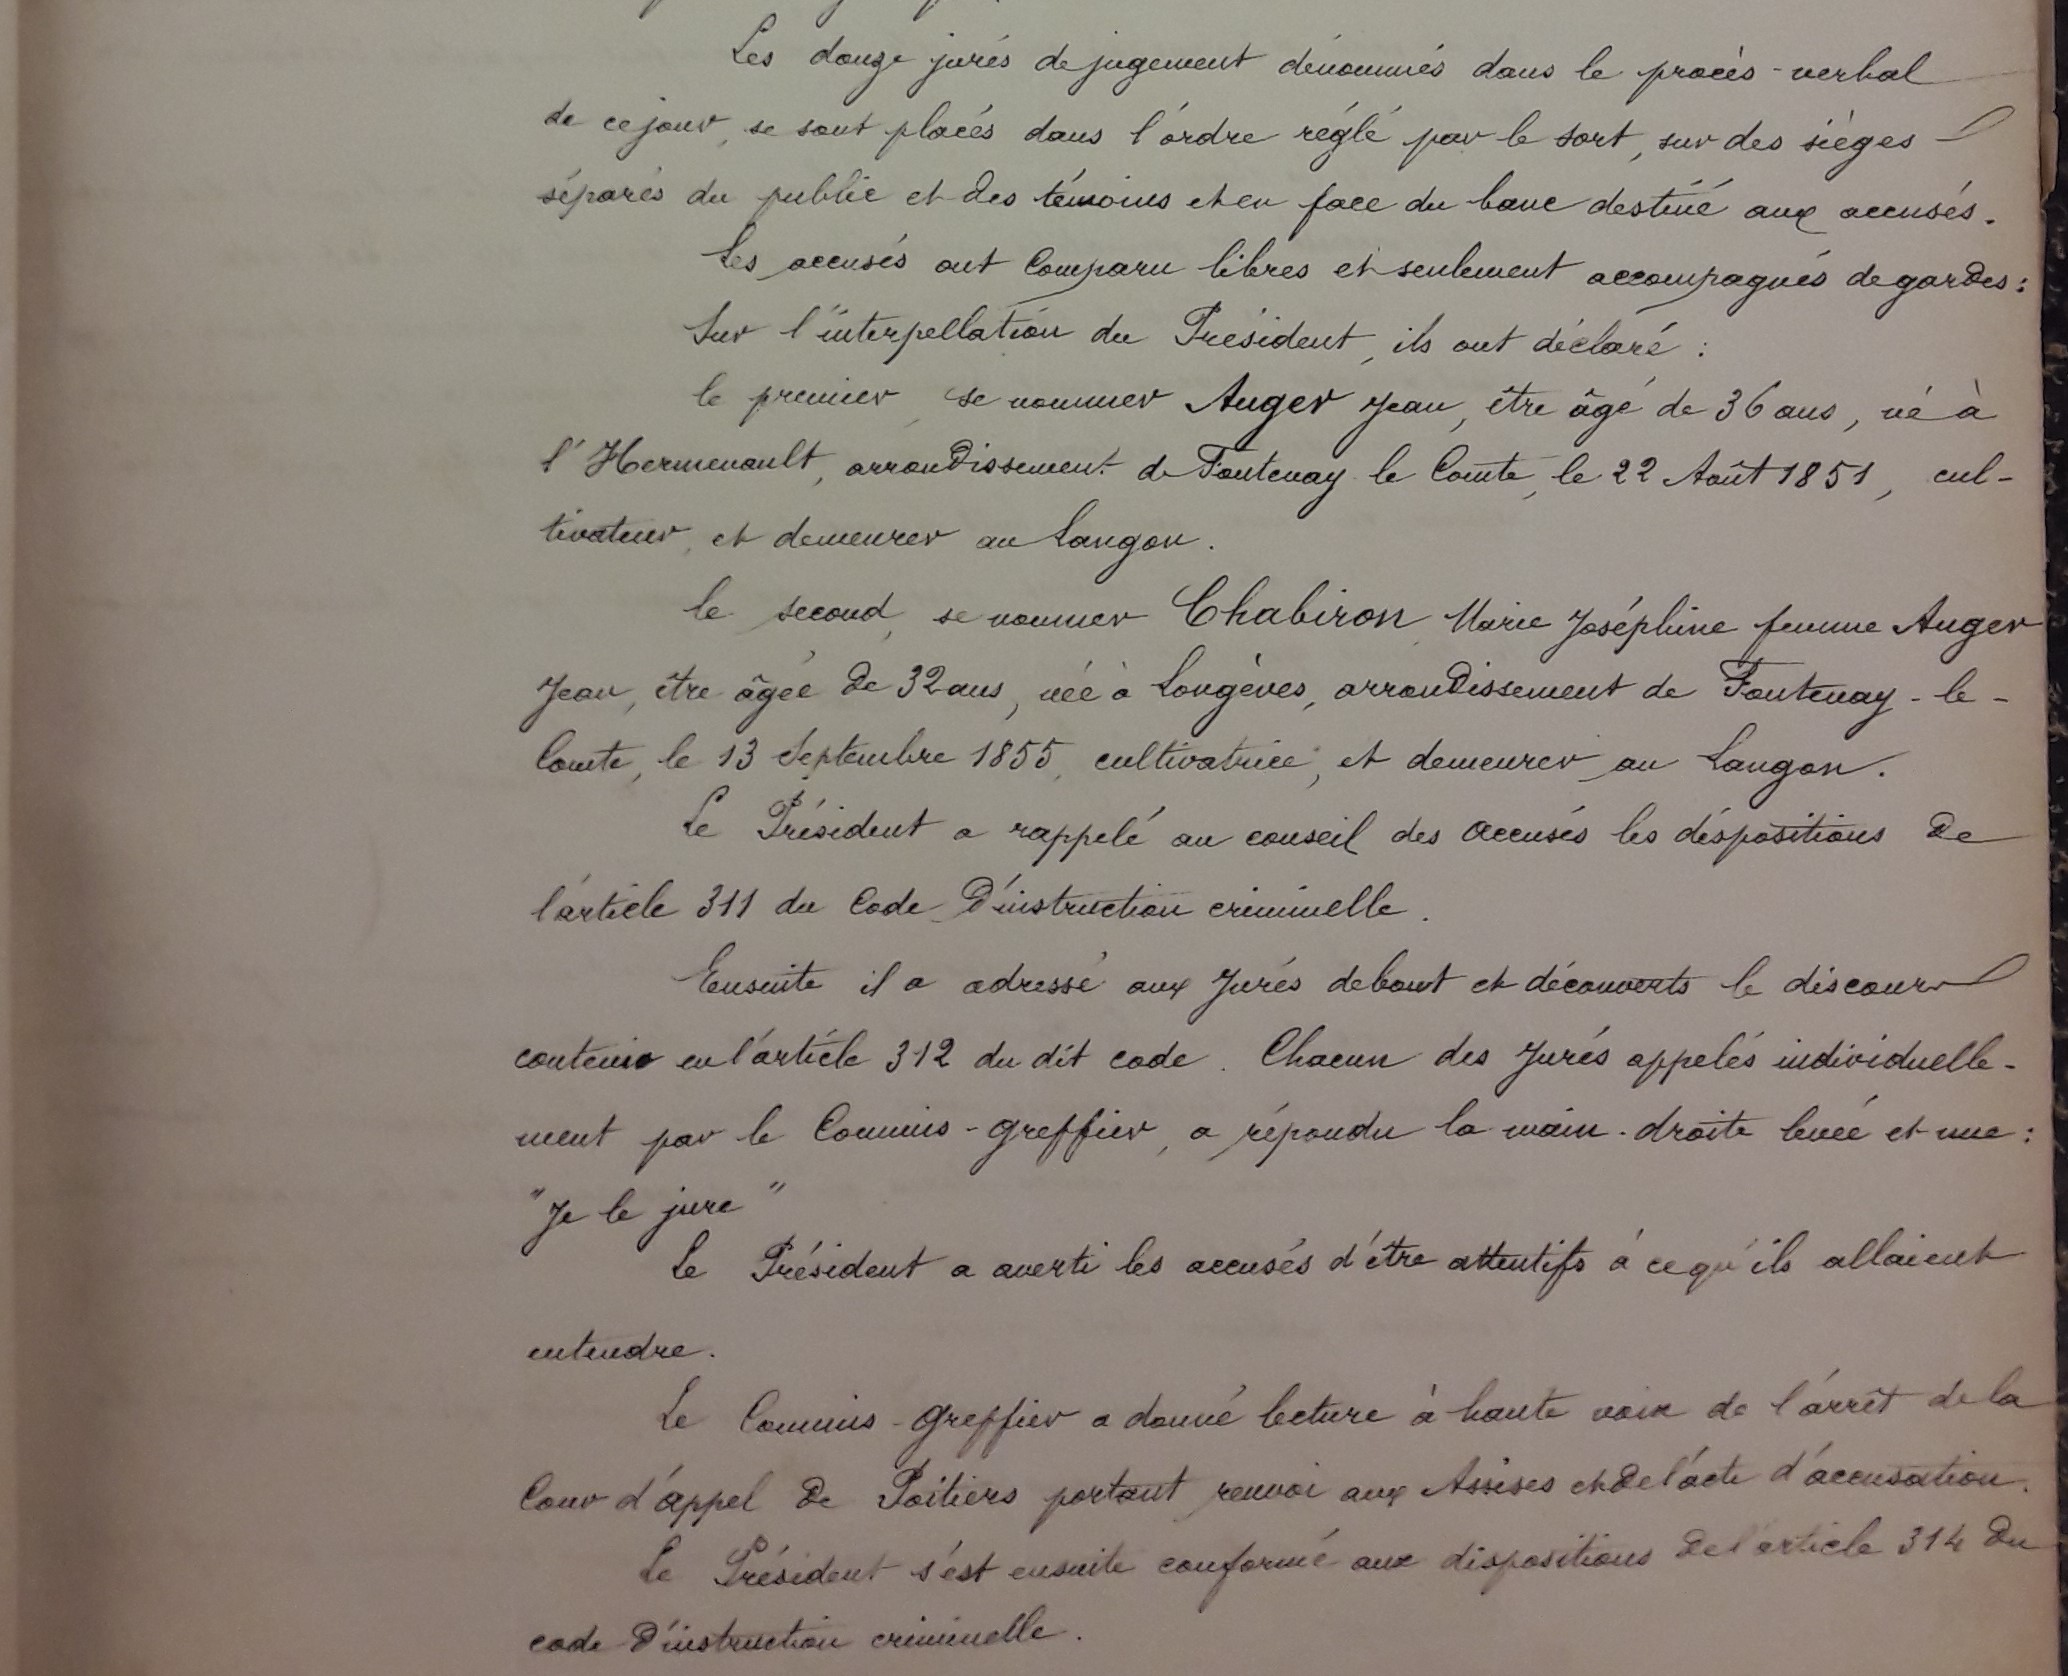 Les douze jurés de jugement dénommés dans le procès-verbal
de ce jour, se sont placés dans l'ordre réglé par le sort, sur des sièges
séparés du public et des témoins et en face du banc destiné aux accusés.
Les accusés ont comparu libres et seulement accompagnés de gardes :
Sur l'interpellation du Président, ils ont déclaré :
le premier, se nommer Auger Jean, être âgé de 36 ans, né à
l'Hermenault, arrondissement de Fontenay le Comte, le 22 Août 1851, cul-
tivateur, et demeurer au Langon.
le second, se nommer Chabiron Marie Joséphine femme Auger
Jean, être âgée de 32 ans, née à Longèves, arrondissement de Fontenay-le-
Comte, le 13 Septembre 1855, cultivatrice, et demeurer au Langon.
Le Président a rappelé au conseil des accusés les dispositions de
l'article 311 du Code d'instruction criminelle.
Ensuite il a adressé aux Jurés debout et découverts le discours
contenu en l'article 312 du dit code. Chacun des Jurés appelés individuelle-
ment par le Commis-greffier, a répondu la main droite levée et nue :
"Je le jure"
Le Président a averti les accusés d'être attentifs à ce qu'ils allaient
entendre.
Le Commis-greffier a donné lecture à haute voix de l'arrêt de la
Cour d'appel de Poitiers portant renvoi aux Assises et de l'acte d'accusation.
Le Président s'est ensuite conformé aux dispositions de l'article 314 du
code d'instruction criminelle.